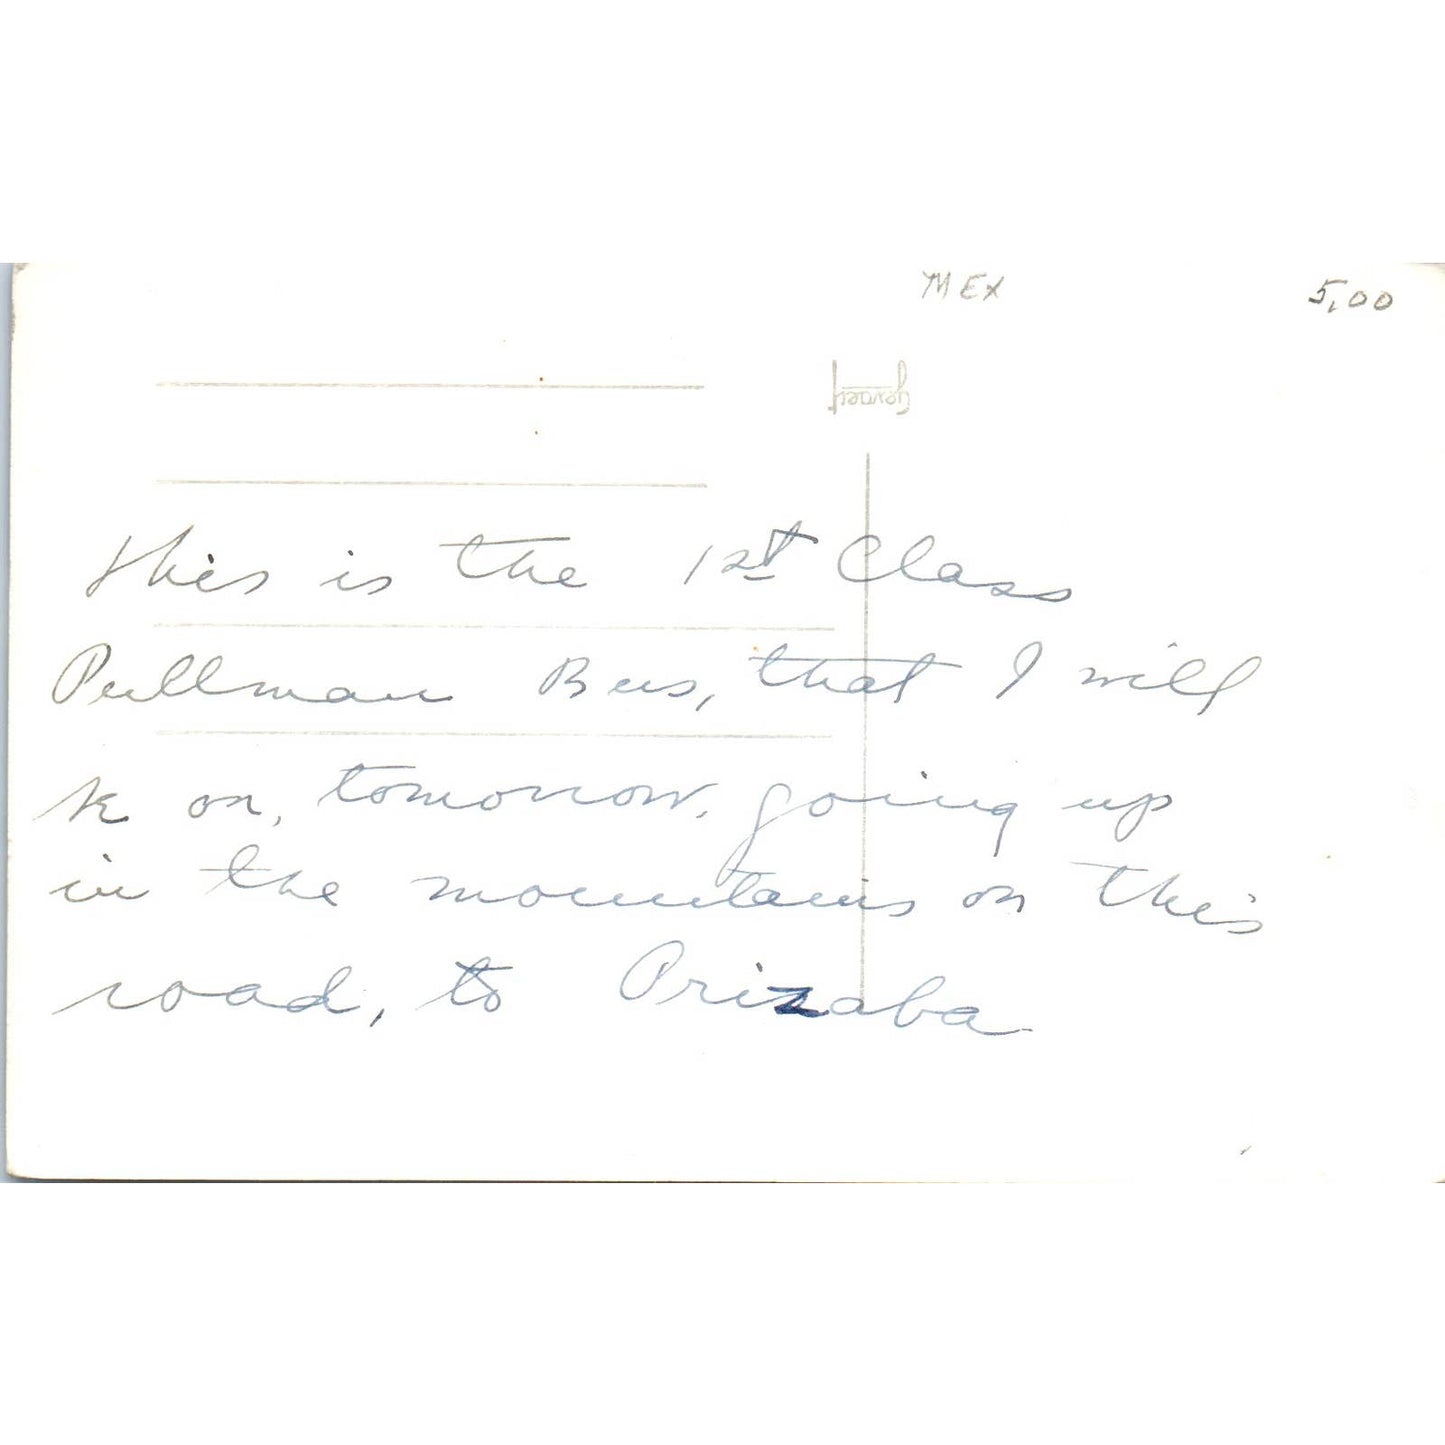 MEX 5.00
Gevaert
this is the 1st Class
Pullman Bus, that I will
on, tomorrow, going up
in the mountains on this
road, to Prizaba